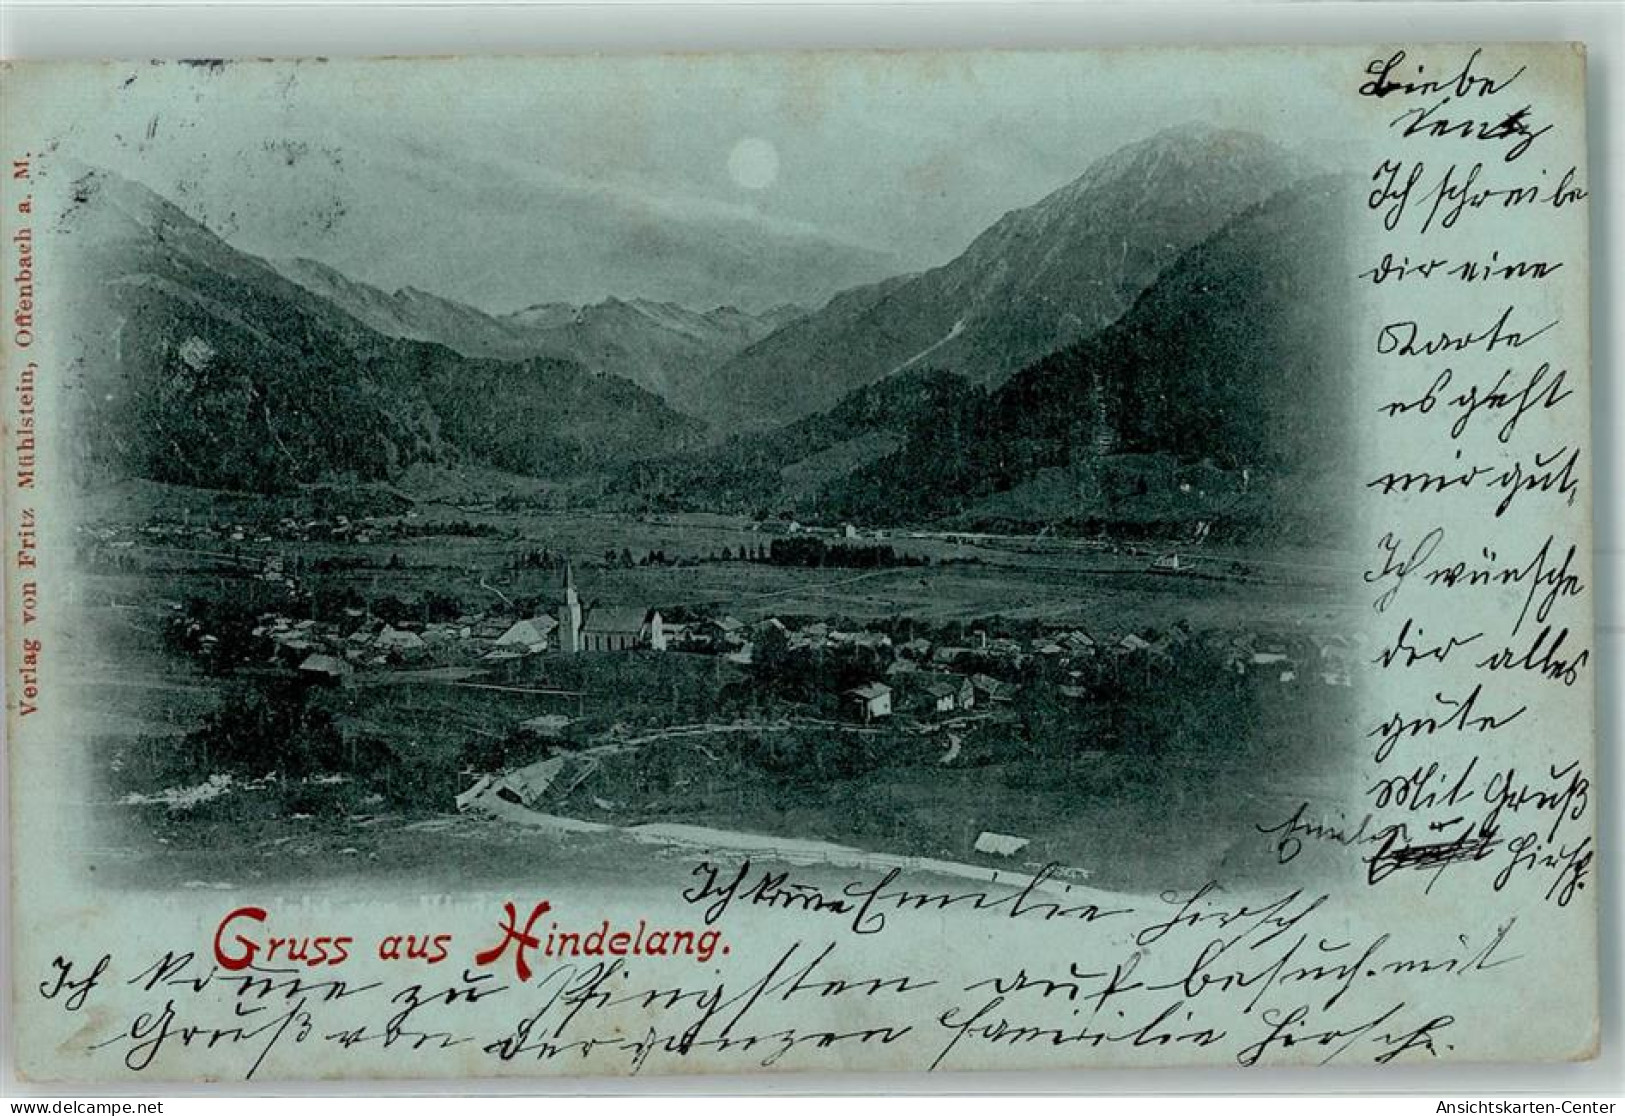 Verlag von Fritz Mühlstein, Offenbach a. M.
Liebe
Ich schreibe
dir eine
Karte
es geht
mir gut,
Ich wünsche
dir alles
gute
Mit Gruß
Emilie Hirsch.
Ich kome Emilie Hirsch
Gruss aus Hindelang.
Ich kome zu Pfingsten auf besuch. mit
Gruß von der ganzen Familie Hirsch.
delcampe.net
Ansichtskarten-Center